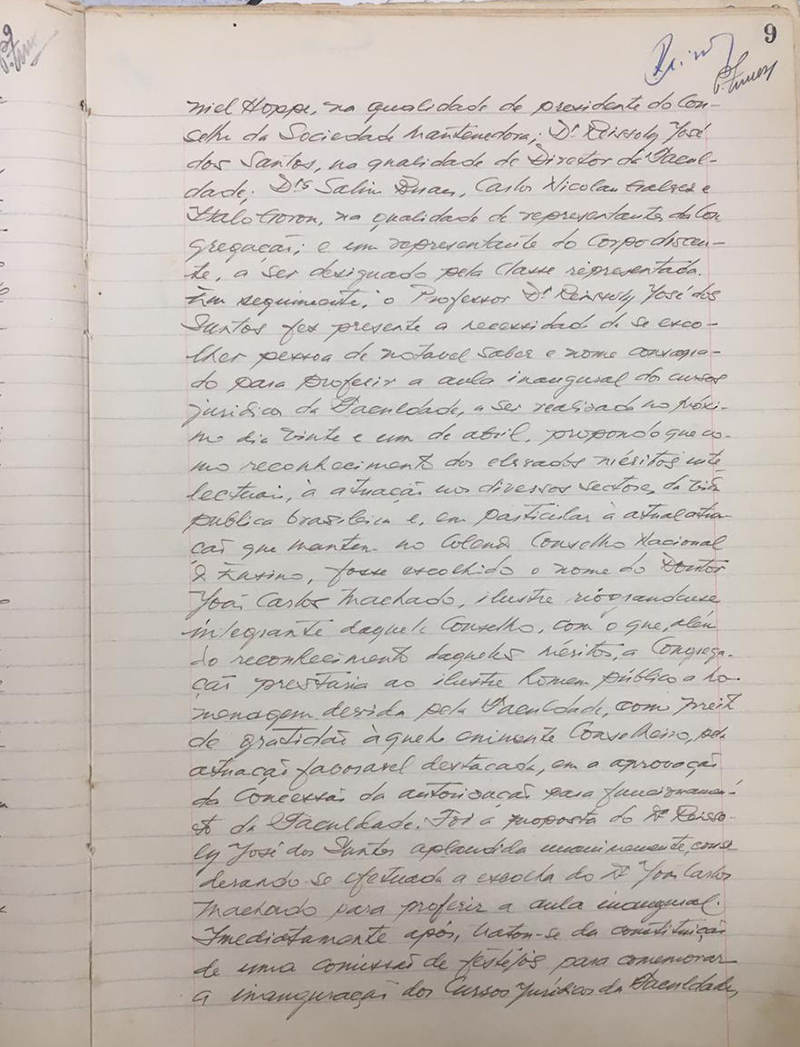 9
niel Hoppe, na qualidade de presidente do Con-
selho da Sociedade Mantenedora; Dr. Reissoly José
dos Santos, na qualidade de Director da Facul-
dade; Drs Salim Carlos Nicolau e
Italo na qualidade de representantes da Con
gregação; e um representante do Corpo discen-
te, a ser designado pela classe representada.
Em seguimento, o Professor Dr Reissoly José dos
Santos fez presente a necessidade de se esco-
lher pessoa de notavel saber e nome consagra-
do para proferir a aula inaugural dos cursos
juridicos da Faculdade, a ser realizada no próxi-
mo dia vinte e um de abril, propondo que co-
mo reconhecimento dos elevados méritos inte
lectuais, à atuação nos diversos sectores da vida
pública brasileira e, em particular à atual atua-
ção que mantem no Colendo Conselho Nacional
de Ensino, fosse escolhido o nome do Doutor
João Carlos Machado, ilustre riograndense
integrante daquele Conselho, com o que, além
do reconhecimento daqueles méritos, a Congrega-
ção prestaria ao ilustre homem público a ho-
menagem devida pela Faculdade, com preit
de gratidão àquele eminente Conselheiro, pela
atuação favoravel destacada, em a aprovação
da Concessão da autorização para funcionamen-
to da Faculdade. Foi a proposta do Dr Reisso-
ly José dos Santos aplaudida unanimemente, consi
derando-se efetuada a escolha do Dr João Carlos
Machado para proferir a aula inaugural.
Imediatamente após, tratou-se da constituição
de uma comissão de festejos para comemorar
a inauguração dos Cursos Jurídicos da Faculdade,